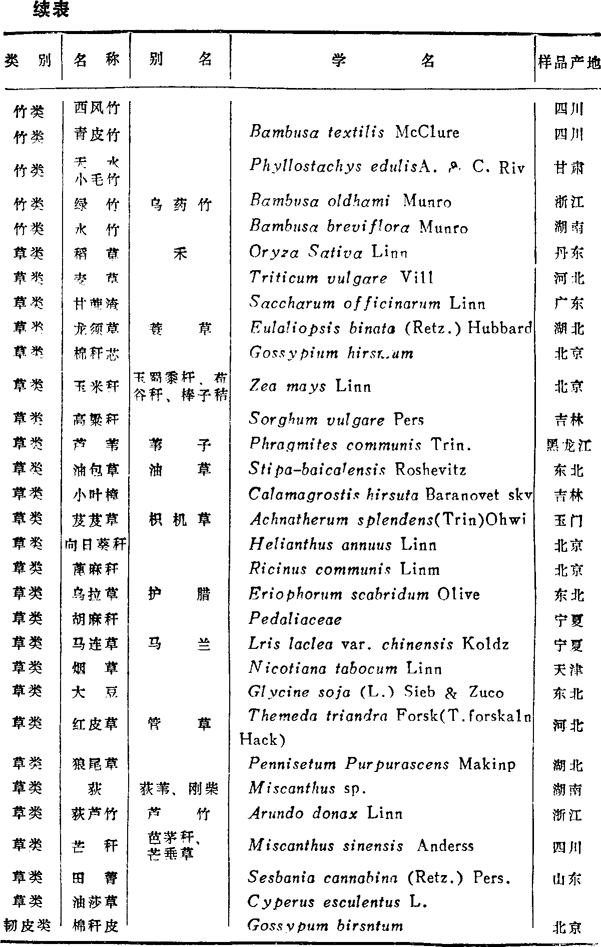 续表
类 别 名 称 别 名 学 名 样品产地
竹类 西风竹 四川
竹类 青皮竹 Bambusa textilis McClure 四川
竹类 天 水 小毛竹 Phyllostachys edulis A. & C. Riv 甘肃
竹类 绿 竹 乌药竹 Bambusa oldhami Munro 浙江
竹类 水 竹 Bambusa breviflora Munro 湖南
草类 稻 草 禾 Oryza Sativa Linn 丹东
草类 麦 草 Triticum vulgare Vill 河北
草类 甘蔗渣 Saccharum officinarum Linn 广东
草类 龙须草 蓑 草 Eulaliopsis binata (Retz.) Hubbard 湖北
草类 棉秆芯 Gossypium 北京
草类 玉米秆 玉蜀黍秆、苞谷秆、棒子秸 Zea mays Linn 北京
草类 高粱秆 Sorghum vulgare Pers 吉林
草类 芦 苇 苇 子 Phragmites communis Trin. 黑龙江
草类 油包草 油 草 Stipa-baicalensis Roshevitz 东北
草类 小叶樟 Calamagrostis hirsuta Baranovet skv 吉林
草类 芨芨草 枳机草 Achnatherum splendens(Trin)Ohwi 玉门
草类 向日葵秆 Helianthus annuus Linn 北京
草类 蓖麻秆 Ricinus communis Linm 北京
草类 乌拉草 护 腊 Eriophorum scabridum Olive 东北
草类 胡麻秆 Pedaliaceae 宁夏
草类 马连草 马 兰 Lris laclea var. chinensis Koldz 宁夏
草类 烟 草 Nicotiana tabocum Linn 天津
草类 大 豆 Glycine soja (L.) Sieb & Zuco 东北
草类 红皮草 管 草 Themeda triandra Forsk(T.forskaln 河北
Hack)
草类 狼尾草 Pennisetum Purpurascens Makinp 湖北
草类 荻 荻苇、刚柴 Miscanthus sp. 湖南
草类 荻芦竹 芦 竹 Arundo donax Linn 浙江
草类 芒 秆 芭茅秆、芒垂草 Miscanthus sinensis Anderss 四川
草类 田 菁 Sesbania cannabina (Retz.) Pers. 山东
草类 油莎草 Cyperus esculentus L.
韧皮类 棉秆皮 Gossypum birsntum 北京